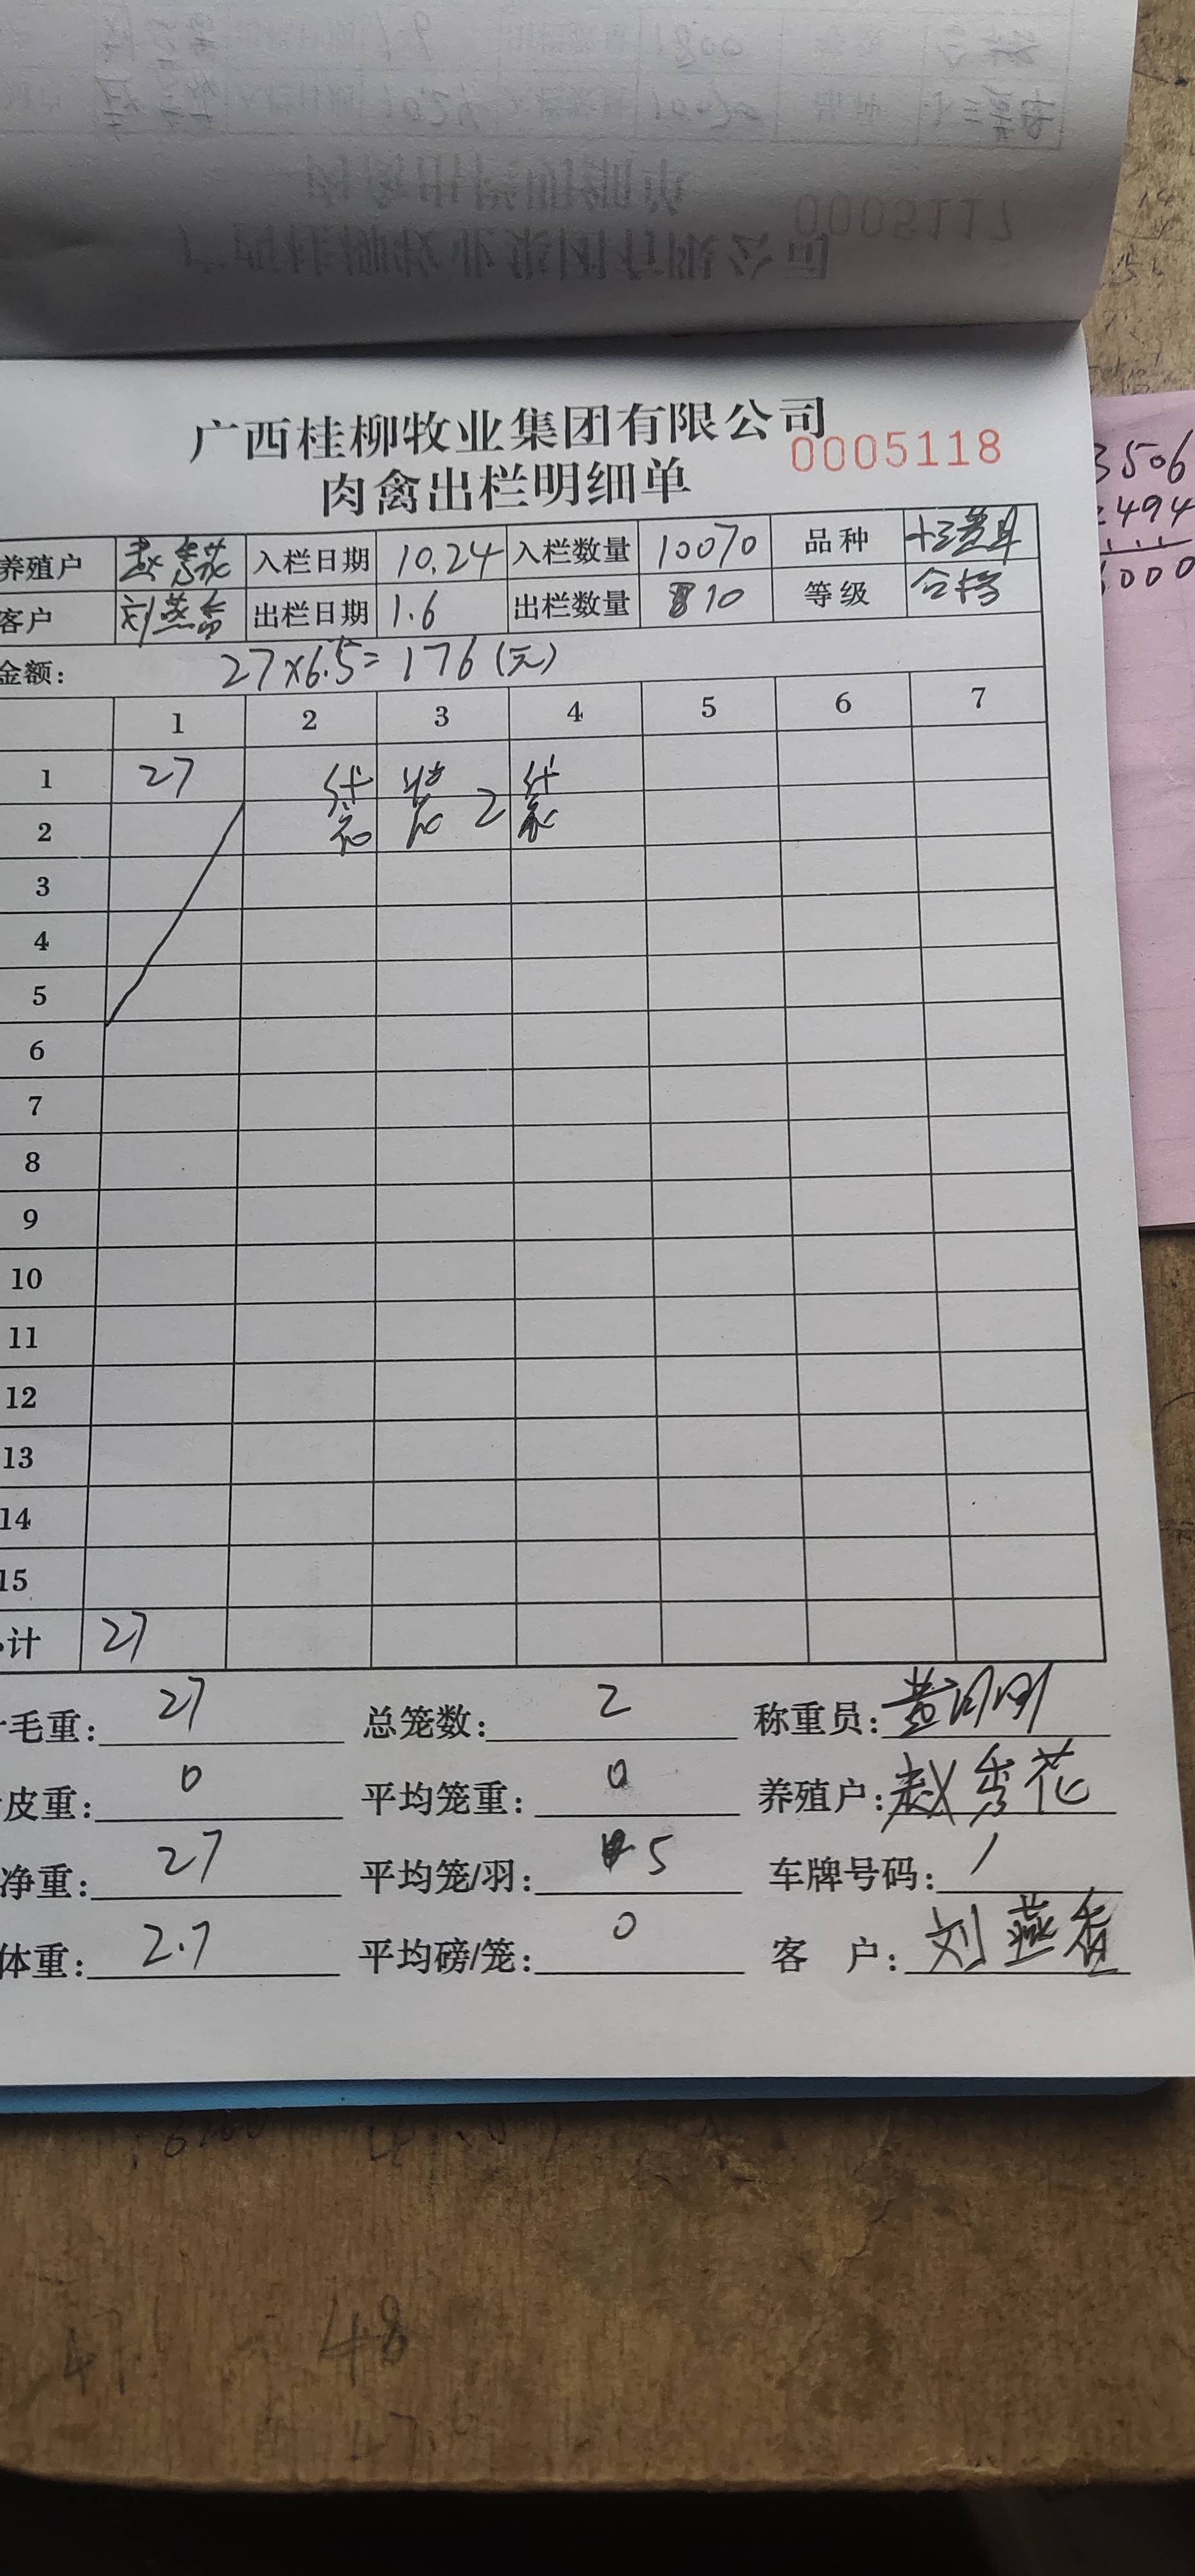 0005117
广西桂柳牧业集团有限公司
0005118
肉禽出栏明细单
养殖户 赵秀花 入栏日期 10.24 入栏数量 10070 品种
客户 刘燕香 出栏日期 1.6 出栏数量 10 等级 合格
金额: 27×6.5=176(元)
1 2 3 4 5 6 7
1 27
2 2
3
4
5
6
7
8
9
10
11
12
13
14
15
计 27
毛重: 27 总笼数: 2 称重员:
皮重: 0 平均笼重: 0 养殖户: 赵秀花
净重: 27 平均笼/羽: 5 车牌号码: /
体重: 2.7 平均磅/笼: 0 客 户: 刘燕香
3506
2494
6000
48